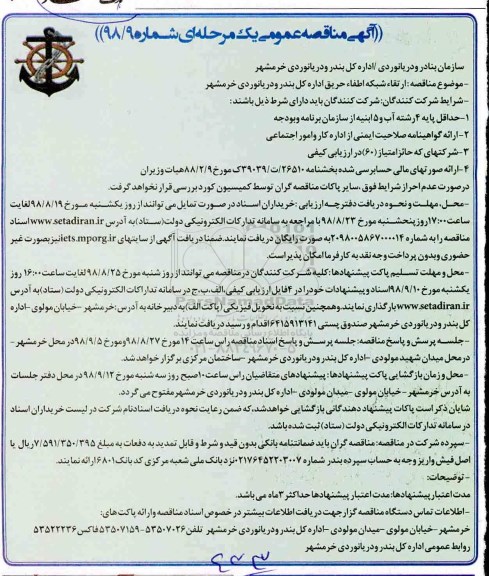 ((آگهی مناقصه عمومی یک مرحله ای شماره ۹۸/۹))
سازمان بنادر و دریانوردی /اداره کل بندر و دریانوردی خرمشهر
-موضوع مناقصه: ارتقاء شبکه اطفاء حریق اداره کل بندر و دریانوردی خرمشهر
-شرایط شرکت کنندگان: شرکت کنندگان باید دارای شرط ذیل باشند:
۱-حداقل پایه ۴ رشته آب و ۵ ابنیه از سازمان برنامه و بودجه
۲-ارائه گواهینامه صلاحیت ایمنی از اداره کار و امور اجتماعی
۳-شرکتهای که حائز امتیاز (۶۰) در ارزیابی کیفی
۴-ارائه صورتهای مالی حسابرسی شده بخشنامه ۲۶۵۱۰/ت/۳۹۰۳۹ک مورخ ۸۸/۲/۹ هیات وزیران
در صورت عدم احراز شرایط فوق، سایر پاکات مناقصه گران توسط کمیسیون کورد بررسی قرار نخواهد گرفت.
-محل، مهلت و نحوه دریافت دفترچه ارزیابی: خریداران اسناد در صورت تمایل می توانند از روز یکشنبه مورخ ۹۸/۸/۱۹ لغایت
ساعت ۱۷:۰۰ روز پنجشنبه مورخ ۹۸/۸/۲۳ با مراجعه به سامانه تدارکات الکترونیکی دولت (ستاد) به آدرس www.setadiran.ir اسناد
مناقصه را به شماره ۲۰۹۸۰۰۵۸۶۷۰۰۰۰۱۴ به صورت رایگان دریافت نمایند. ضمنا دریافت آگهی از سایتهای iets.mporg.ir نیز بصورت غیر
حضوری و بدون پرداخت وجه نقد به کارفرما امکان پذیر است.
-محل و مهلت تسلیم پاکت پیشنهادها: کلیه شرکت کنندگان در مناقصه می توانند از روز شنبه مورخ ۹۸/۸/۲۵ لغایت ساعت ۱۶:۰۰ روز
یکشنبه مورخ ۹۸/۹/۱۰ اسناد و پیشنهادات خود را در ۴ فایل ارزیابی کیفی، الف، ب، ج در سامانه تدارکات الکترونیکی دولت (ستاد) به آدرس
www.setadiran.ir بارگذاری نمایند. و همچنین نسبت به تحویل فیزیکی (پاکت الف) به دبیرخانه به آدرس: خرمشهر -خیابان مولوی -اداره
کل بندر و دریانوردی خرمشهر صندوق پستی ۶۴۱۵۹۱۳۱۴۱ اقدام و رسید دریافت نمایند.
-جلسه پرسش و پاسخ مناقصه: جلسه پرسش و پاسخ اسناد مناقصه راس ساعت ۱۴ مورخ ۹۸/۸/۲۷ و مورخ ۹۸/۹/۵ در محل خرمشهر -
در محل میدان شهید مولودی -اداره کل بندر و دریانوردی خرمشهر -ساختمان مرکزی برگزار خواهد شد.
-محل و زمان بازگشایی پاکات پیشنهادها: پیشنهادهای متقاضیان راس ساعت ۱۰ صبح روز سه شنبه مورخ ۹۸/۹/۱۲ در محل دفتر جلسات
به آدرس خرمشهر -خیابان مولوی -میدان مولودی -اداره کل بندر و دریانوردی خرمشهر مفتوح می گردد.
شایان ذکر است پاکات پیشنهاد دهندگانی بازگشایی خواهد شد، که ضمن رعایت نحوه دریافت اسناد نام شرکت در لیست خریداران اسناد
در سامانه تدارکات الکترونیکی دولت (ستاد) ثبت شده باشد.
-سپرده شرکت در مناقصه: مناقصه گران باید ضمانتنامه بانکی بدون قید و شرط و قابل تمدید به دفعات به مبلغ ۷/۵۹۱/۳۵۰/۳۹۵ ریال یا
اصل فیش واریز وجه به حساب سپرده بندر شماره ۰۲۱۷۶۴۵۲۲۰۳۰۰۷ نزد بانک ملی شعبه مرکزی کد بانک ۶۸۰۱ ارائه نمایند.
-توضیحات:
مدت اعتبار پیشنهادها: مدت اعتبار پیشنهادها حداکثر ۳ ماه می باشد.
-اطلاعات تماس دستگاه مناقصه گزار جهت دریافت اطلاعات بیشتر در خصوص اسناد مناقصه و ارائه پاکت های:
خرمشهر -خیابان مولوی -میدان مولودی -اداره کل بندر و دریانوردی خرمشهر تلفن ۵۳۵۰۷۰۲۶-۵۳۵۰۷۱۵۹ فاکس ۵۳۵۲۲۲۳۶
روابط عمومی اداره کل بندر و دریانوردی خرمشهر